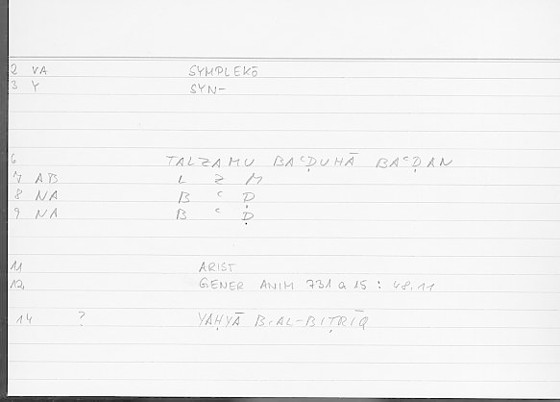 2 VA SYMPLEKŌ
3 Y SYN-
6 TALZAMU BAʿḌUHĀ BAʿḌAN
7 AB L Z M
8 NA B ʿ Ḍ
9 NA B ʿ Ḍ
11 ARIST
12 GENER ANIM 731 a 15 : 48,11
14 ? YAḤYĀ B. AL-BIṬRĪQ